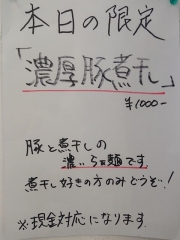 本日の限定
「濃厚豚煮干し」
¥1000-
豚と煮干しの
濃いらぁ麺です
煮干し好きの方のみどうぞ!
※現金対応になります